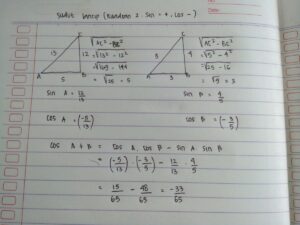 Sudut lancip (kuadran 2. Sin = +, cos -)
C
13
12
A
5
B
√AC² - BC²
= √13² - 12²
= √169 - 144
= √25 = 5
C
4
A
3
B
√AC² - BC²
= √5² - 4²
= √25 - 16
= √9 = 3
Sin A = 12/13
Sin B = 4/5
Cos A = (-5/13)
Cos B = (-3/5)
Cos A + B = Cos A. Cos B - Sin A. Sin B
= (-5/13) . (-3/5) - 12/13 . 4/5
= 15/65 - 48/65 = -33/65